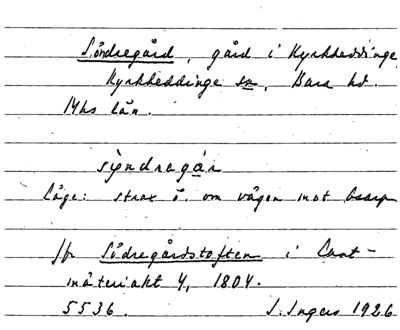 Söndregård, gård i Kyrkheddinge,
Kyrkheddinge sn, Bara hd.
Mhs län.
sỳndragår
Läge: strax ö. om vägen mot Esarp
Jfr Södregårdstoften i Lant-
mäteriakt 4, 1804.
5536. I. Ingers 1926